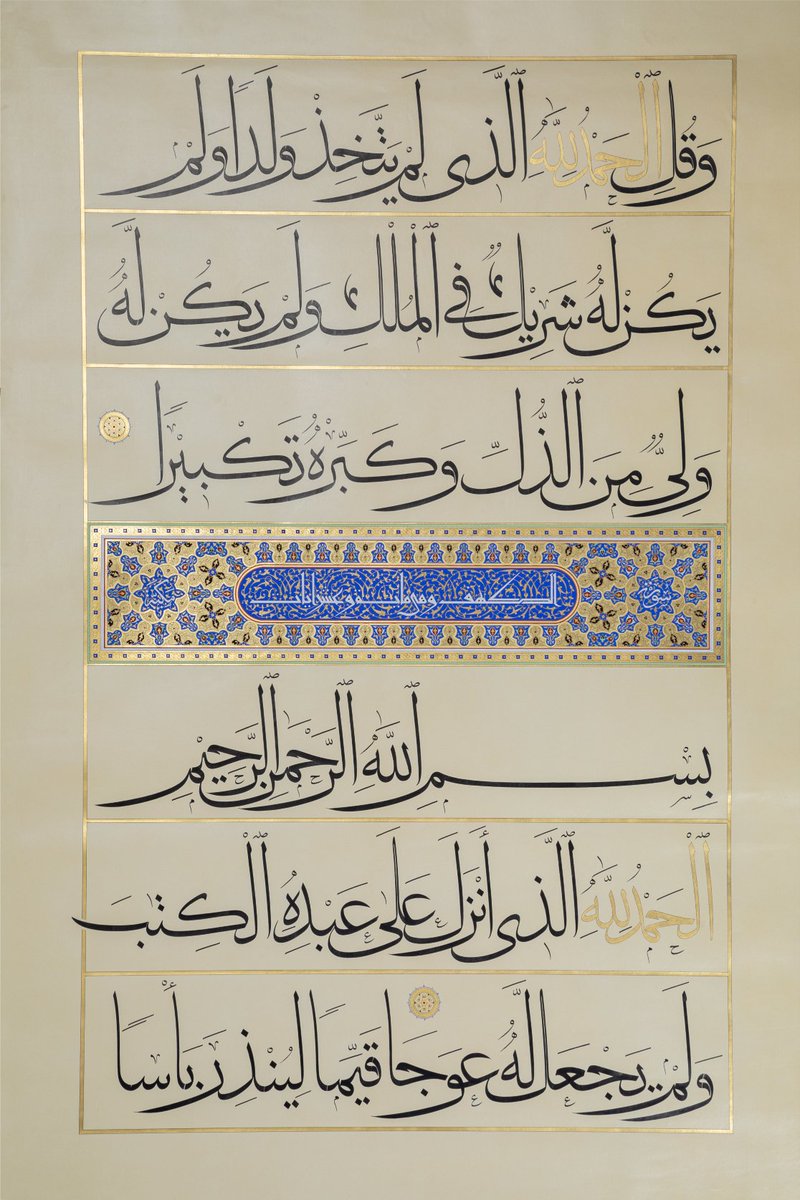 وَقُلِ ٱلْحَمْدُ لِلَّهِ ٱلَّذِى لَمْ يَتَّخِذْ وَلَدًا وَلَمْ
يَكُن لَّهُۥ شَرِيكٌ فِى ٱلْمُلْكِ وَلَمْ يَكُن لَّهُۥ
وَلِىٌّ مِّنَ ٱلذُّلِّ وَكَبِّرْهُ تَكْبِيرًۢا
سورة
بِسْمِ ٱللَّهِ ٱلرَّحْمَٰنِ ٱلرَّحِيمِ
ٱلْحَمْدُ لِلَّهِ ٱلَّذِىٓ أَنزَلَ عَلَىٰ عَبْدِهِ ٱلْكِتَٰبَ
وَلَمْ يَجْعَل لَّهُۥ عِوَجَا قَيِّمًا لِّيُنذِرَ بَأْسًا